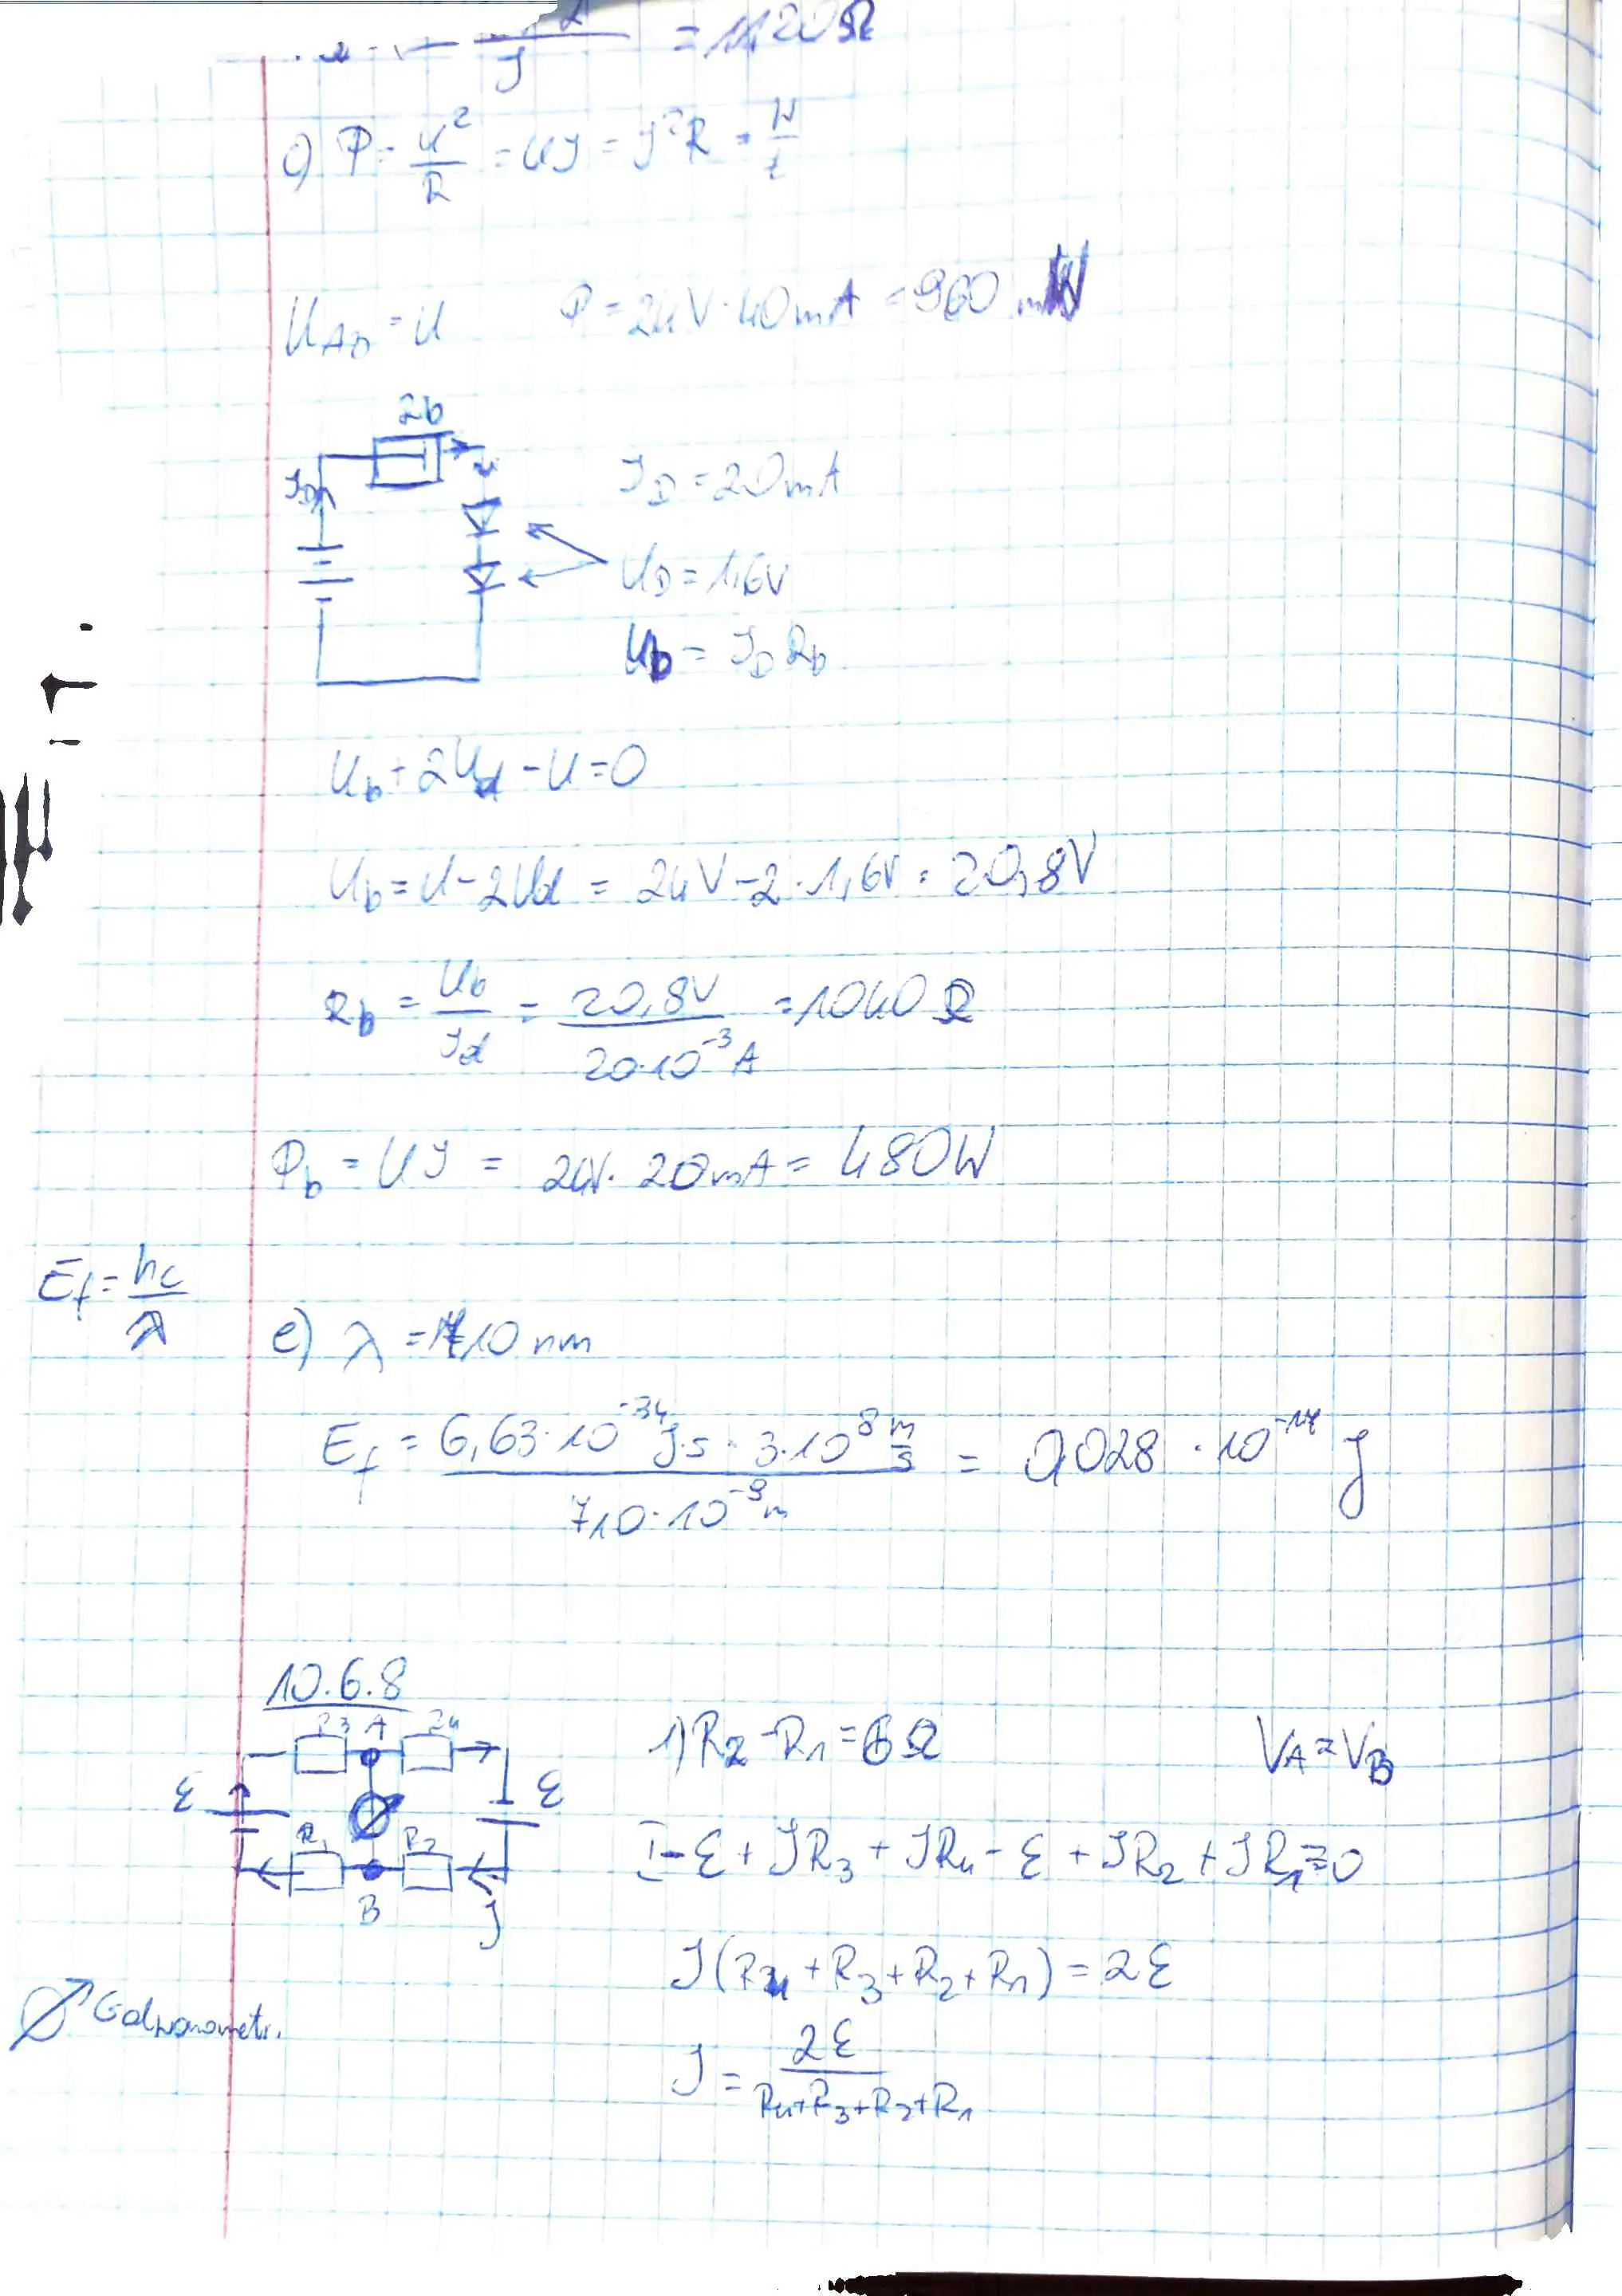 J = 1120Ω
c) P = U²/R = UJ = J²R = W/t
U_AB = U P = 24V · 40mA = 960 mW
Rb
J_D
J_D = 20mA
U_D = 1,6V
U_b = J_D R_b
U_b + 2U_d - U = 0
U_b = U - 2U_d = 24V - 2 · 1,6V = 20,8V
R_b = U_b/J_d = 20,8V/20·10⁻³A = 1040 Ω
P_b = UJ = 24V · 20mA = 480W
E_f = hc/λ
e) λ = 710 nm
E_f = 6,63·10⁻³⁴J·s · 3·10⁸ m/s / 710·10⁻⁹m = 0,028 · 10⁻¹⁷ J
10.6.8
R3 A R4
1) R2 - R1 = 6Ω V_A = V_B
ε ε
R1 R2
I - ε + JR3 + JR4 - ε + JR2 + JR1 = 0
B J
J(R4 + R3 + R2 + R1) = 2ε
Galwanometr.
J = 2ε/R4+R3+R2+R1